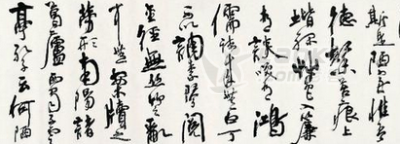 斯是陋室惟吾
德馨苔痕上
堦綠草色入簾
青談笑有鴻
儒往來無白丁
可以調素琴閱
金經無絲竹之亂
耳無案牘之
勞形南陽諸
葛廬西蜀子雲
亭孔子云何陋